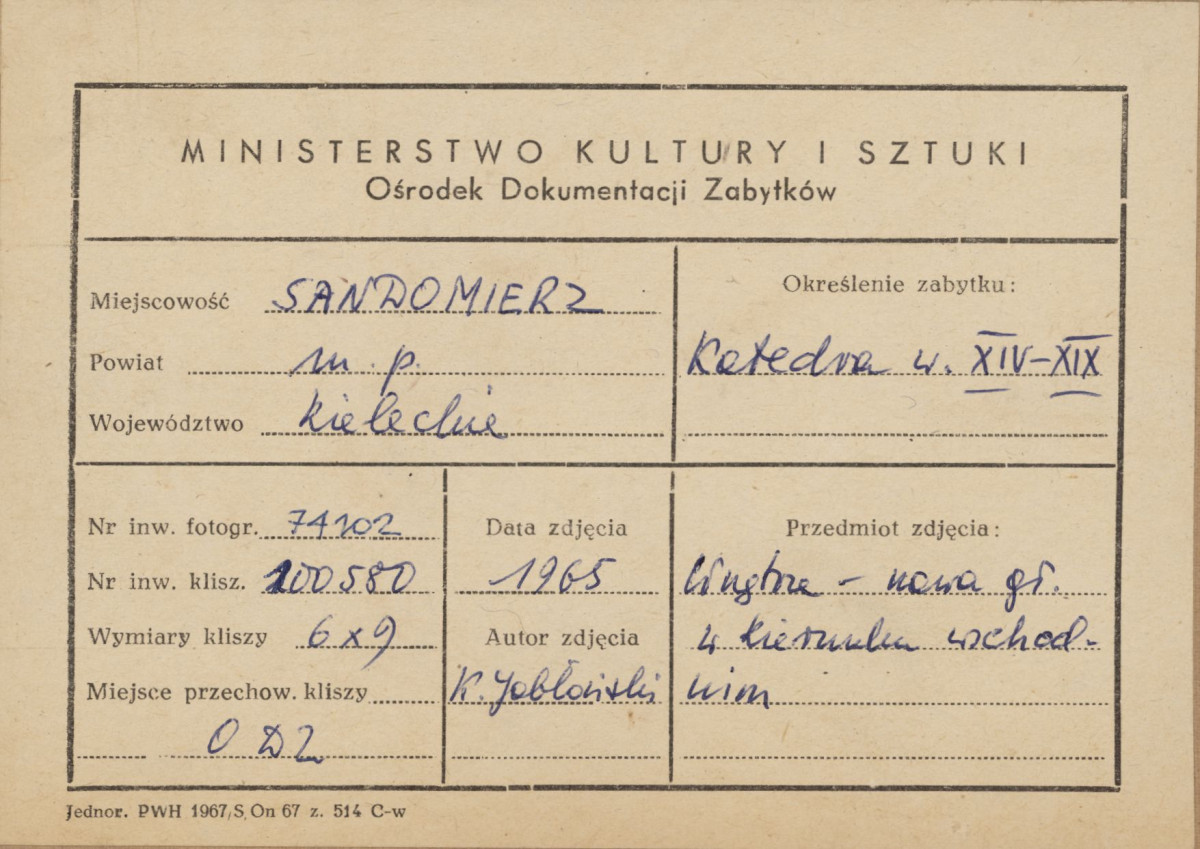 MINISTERSTWO KULTURY I SZTUKI
Ośrodek Dokumentacji Zabytków
Miejscowość SANDOMIERZ
Powiat m. p.
Województwo Kieleckie
Określenie zabytku:
Katedra w. XIV-XIX
Nr inw. fotogr. 74202
Nr inw. klisz. 100580
Wymiary kliszy 6x9
Miejsce przechow. kliszy
ODZ
Data zdjęcia
1965
Autor zdjęcia
K. Jabłoński
Przedmiot zdjęcia:
Wnętrze - nawa gł.
w kierunku wschod-
nim
Jednor. PWH 1967/S. On 67 z. 514 C-w